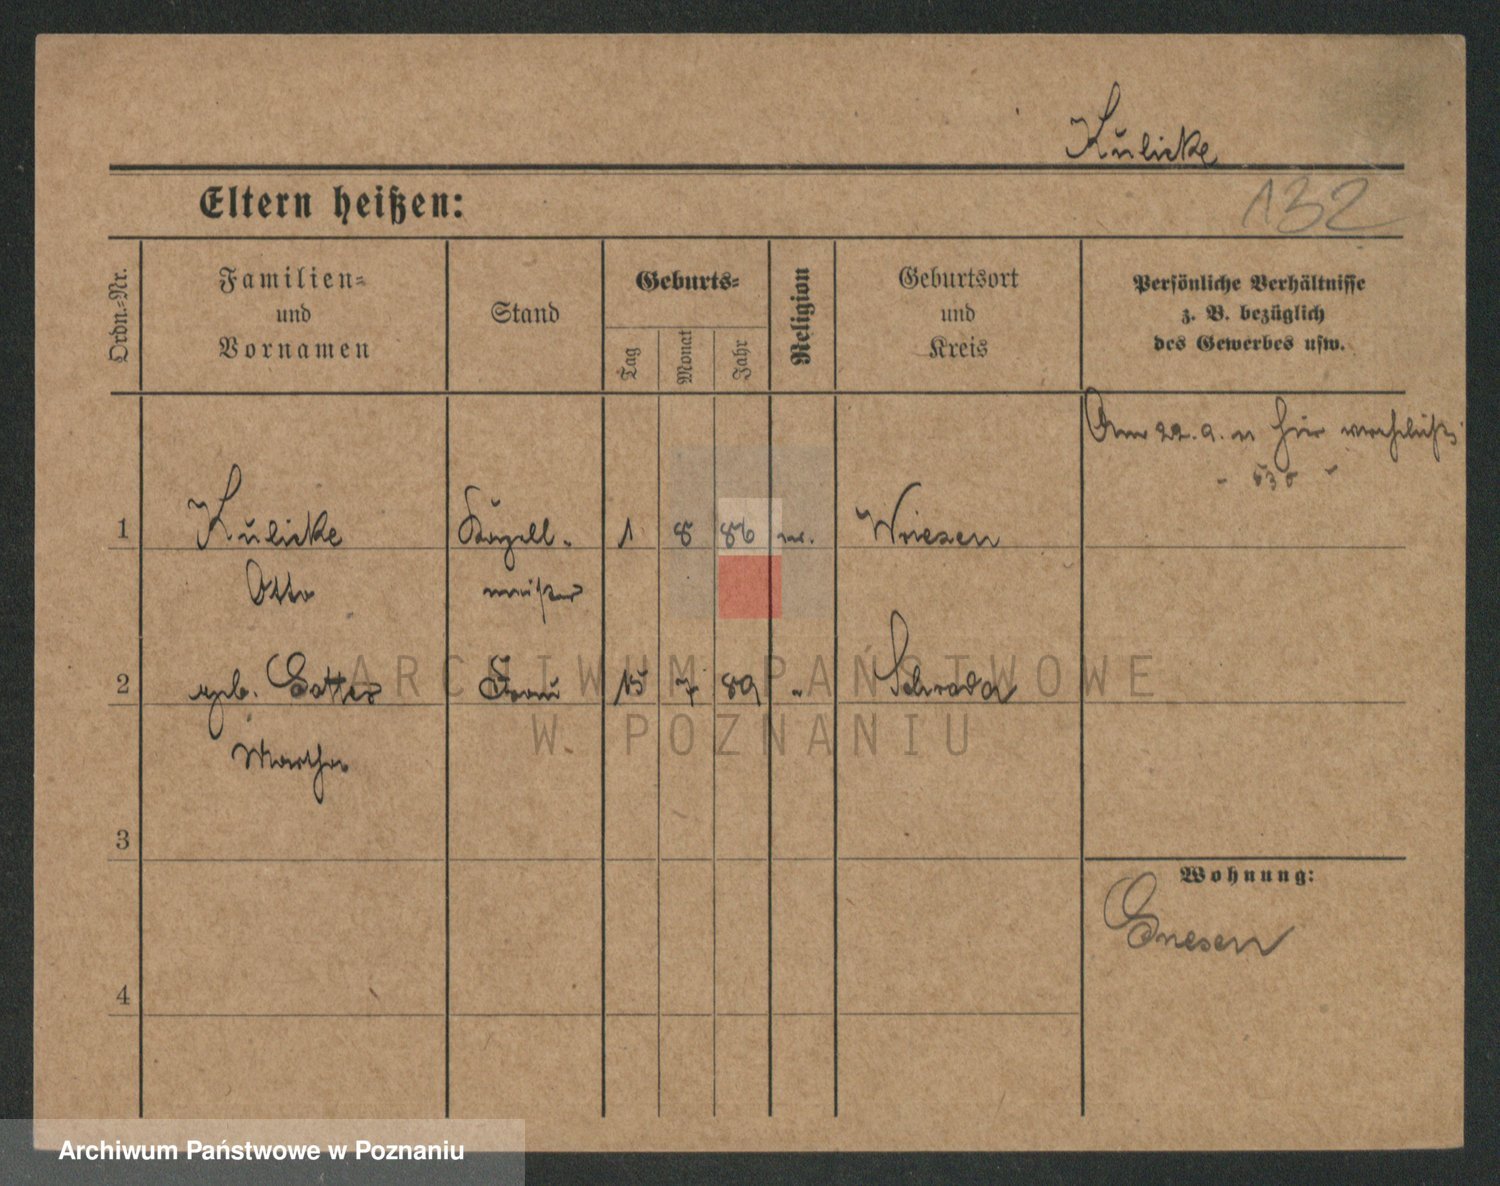 Kulicke
Eltern heißen:
132
Ordn.-Nr.
Familien-
und
Vornamen
Stand
Geburts-
Tag
Monat
Jahr
Religion
Geburtsort
und
Kreis
Persönliche Verhältnisse
z. B. bezüglich
des Gewerbes usw.
Am 22. 9. 11 hier verehelicht
- 530 -
1 Kulicke 1 8 86 ev. Wriezen
Otto meister
2 geb. Frau 15 7 89 " Schroda
Martha
3
Wohnung:
Gnesen
4
ARCHIWUM PAŃSTWOWE
W POZNANIU
Archiwum Państwowe w Poznaniu